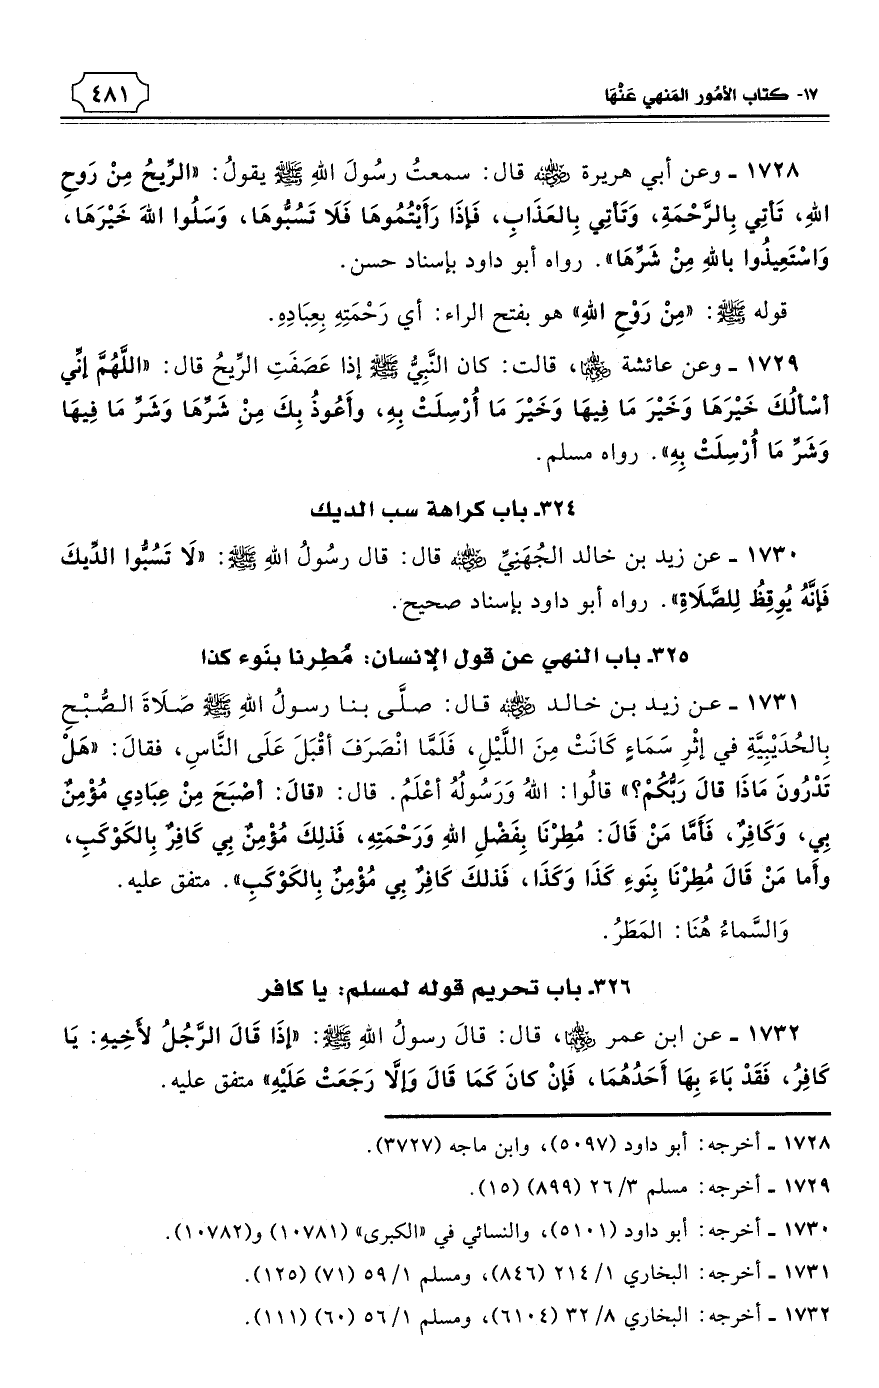 ١٧- كتاب الأمُور المَنهي عَنْهَا
٤٨١
١٧٢٨ ـ وعن أبي هريرة ﵁ قال: سمعتُ رسُولَ اللهِ ﷺ يقولُ: «الرِّيحُ مِنْ رَوحِ
اللهِ، تَأتِي بِالرَّحْمَةِ، وَتَأتِي بِالعَذَابِ، فَإذَا رَأيْتُمُوهَا فَلَا تَسُبُّوهَا، وَسَلُوا اللهَ خَيْرَهَا،
وَاسْتَعِيذُوا باللهِ مِنْ شَرِّهَا». رواه أبو داود بإسناد حسن.
قوله ﷺ: «مِنْ رَوْحِ اللهِ» هو بفتح الراء: أي رَحْمَتِهِ بِعِبَادِهِ.
١٧٢٩ ـ وعن عائشة ﵂، قالت: كان النَّبِيُّ ﷺ إذا عَصَفَتِ الرِّيحُ قال: «اللَّهُمَّ إنِّي
أسْألُكَ خَيْرَهَا وَخَيْرَ مَا فِيهَا وَخَيْرَ مَا أُرْسِلَتْ بِهِ، وأَعُوذُ بِكَ مِنْ شَرِّهَا وَشَرِّ مَا فِيهَا
وَشَرِّ مَا أُرْسِلَتْ بِهِ». رواه مسلم.
٣٢٤ـ باب كراهة سب الديك
١٧٣٠ ـ عن زيد بن خالد الجُهَنِيِّ ﵁ قال: قال رسُولُ اللهِ ﷺ: «لَا تَسُبُّوا الدِّيكَ
فَإنَّهُ يُوقِظُ لِلصَّلَاةِ». رواه أبو داود بإسناد صحيح.
٣٢٥ـ باب النهي عن قول الإنسان: مُطِرنا بنَوء كذا
١٧٣١ ـ عن زيد بن خالد ﵁ قال: صلَّى بنا رسولُ اللهِ ﷺ صَلَاةَ الصُّبْحِ
بِالحُدَيْبِيَّةِ في إثْرِ سَمَاءٍ كَانَتْ مِنَ اللَّيْلِ، فَلَمَّا انْصَرَفَ أقْبَلَ عَلَى النَّاسِ، فقالَ: «هَلْ
تَدْرُونَ مَاذَا قالَ رَبُّكُمْ؟» قالُوا: اللهُ وَرَسُولُهُ أعْلَمُ. قال: «قالَ: أصْبَحَ مِنْ عِبَادِي مُؤْمِنٌ
بِي، وَكَافِرٌ، فَأَمَّا مَنْ قَالَ: مُطِرْنَا بِفَضْلِ اللهِ وَرَحْمَتِهِ، فَذلِكَ مُؤْمِنٌ بِي كَافِرٌ بِالكَوْكَبِ،
وأما مَنْ قَالَ مُطِرْنَا بِنَوءِ كَذَا وَكَذَا، فَذلكَ كَافِرٌ بِي مُؤْمِنٌ بِالكَوْكَبِ». متفق عليه.
وَالسَّماءُ هُنَا: المَطَرُ.
٣٢٦ـ باب تحريم قوله لمسلم: يا كافر
١٧٣٢ ـ عن ابن عمر ﵄، قال: قالَ رسولُ اللهِ ﷺ: «إذَا قَالَ الرَّجُلُ لأَخِيهِ: يَا
كَافِرُ، فَقَدْ بَاءَ بِهَا أَحَدُهُمَا، فَإنْ كانَ كَمَا قَالَ وَإلَّا رَجَعَتْ عَلَيْهِ» متفق عليه.
١٧٢٨ ـ أخرجه: أبو داود (٥٠٩٧)، وابن ماجه (٣٧٢٧).
١٧٢٩ ـ أخرجه: مسلم ٣/ ٢٦ (٨٩٩) (١٥).
١٧٣٠ ـ أخرجه: أبو داود (٥١٠١)، والنسائي في «الكبرى» (١٠٧٨١) و(١٠٧٨٢).
١٧٣١ ـ أخرجه: البخاري ١/ ٢١٤ (٨٤٦)، ومسلم ١/ ٥٩ (٧١) (١٢٥).
١٧٣٢ ـ أخرجه: البخاري ٨/ ٣٢ (٦١٠٤)، ومسلم ١/ ٥٦ (٦٠) (١١١).